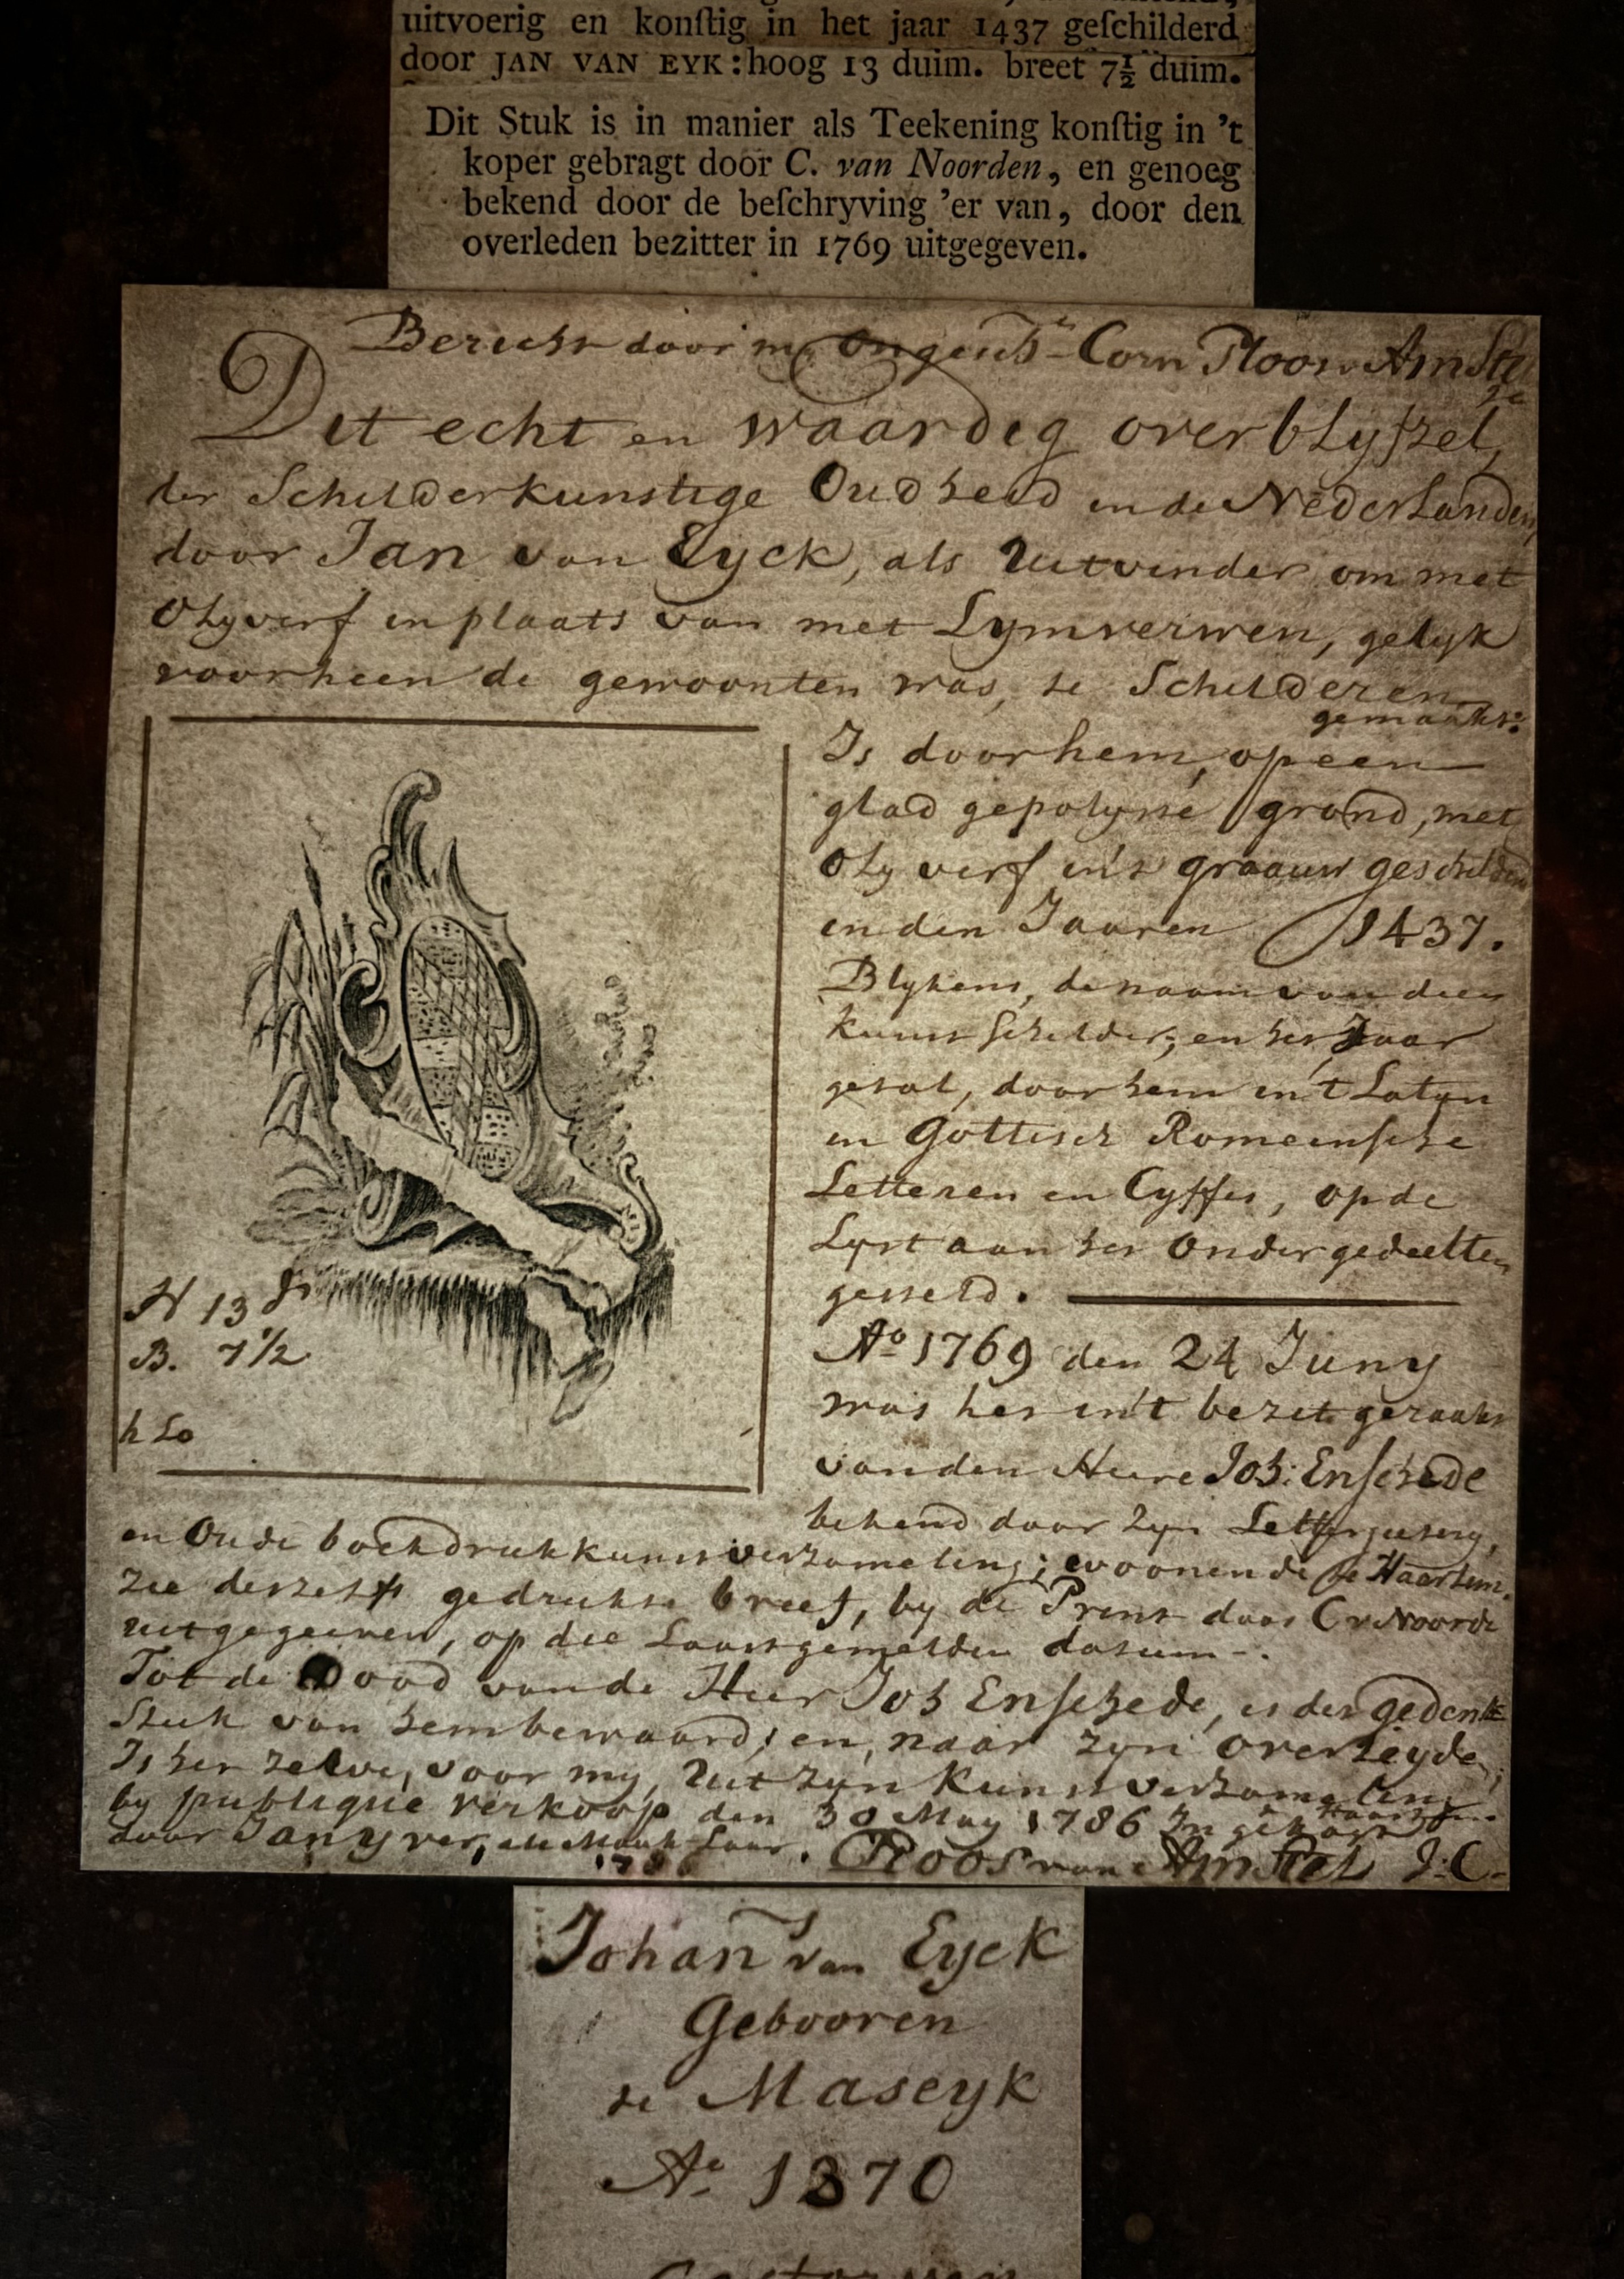 uitvoerig en konſtig in het jaar 1437 geſchilderd
door JAN VAN EYK: hoog 13 duim. breet 7½ duim.
Dit Stuk is in manier als Teekening konſtig in 't
koper gebragt door C. van Noorden, en genoeg
bekend door de beſchryving 'er van, door den
overleden bezitter in 1769 uitgegeven.
Bericht door my Corn Ploos v Amstel
Dit echt en waardig overblyfzel,
der Schilderkunstige Oudheid in de Nederlanden,
door Jan van Eyck, als Uitvinder om met
Olyverf in plaats van met Lymverwen, gelyk
voorheen de gewoonten was, te Schilderen
gemaakt:
Is door hem, op een
glad gepolyste grond, met
Oly verf in't graauw geschilderd
in den Jaaren 1437.
Blykens, de naam van dien
kunst schilder; en het Jaar
getal, door hem in 't Latyn
in Gottisch Romeinsche
Letteren en Cyffer, op de
Lyst aan het Onder gedeelten
gesteld.
H 13 dm
B. 7 1/2
Ao 1769 den 24 Juny
was het in't bezit geraakt
van den Heere Joh: Enschede
bekend door zyn Lettergietery,
en Oude boekdrukkunst verzameling; woonende te Haarlem.
Zie deszelfs gedrukte brief, by de Prent door C v Noorde
uitgegeeven, op die Laastgemelden datum.
Tot de Dood van de Heer Joh Enschede, is dit gedenk
Stuk van hem bewaard; en, naar zyn overleyden,
Is het zelve, voor my, Uit zyn Kunst verzameling
by publique verkoop den 30 May 1786 In gekocht
door Jan Yver, de Makelaar. Ploos van Amstel J:C.
1786
Johans van Eyck
Gebooren
te Maseyk
Ao 1370